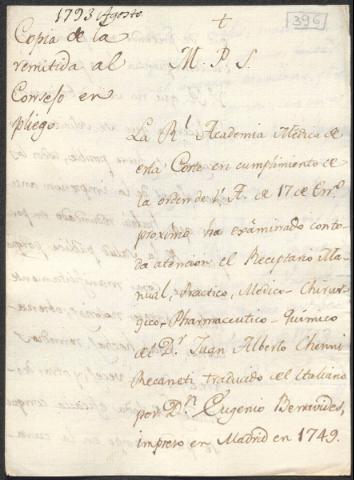 1793 Agosto
396
Copia de la
remitida al
Consejo en
pliego
M. P. S.
La Rl. Academia Medica de
esta Corte en cumplimiento de
la orden de V. A. de 17 de Enro.
proximo ha examinado con to-
da atencion el Recetario Ma-
nual, Practico, Medico-Chirur-
gico-Pharmaceutico-Quimico
del Dr. Juan Alberto Chenni
Recaneti, traducido del Italiano
por Dn. Eugenio Benavides,
impreso en Madrid en 1749.